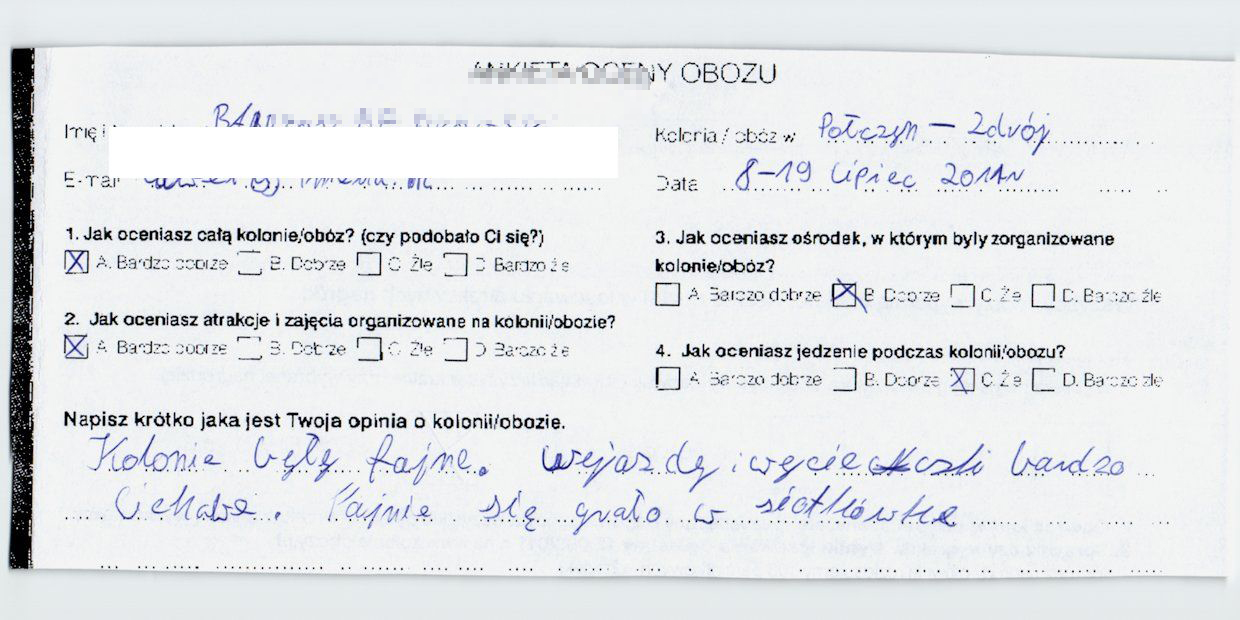 ANKIETA OCENY OBOZU
Imię i
Kolonia / obóz w Połczyn - Zdrój
E-mail
Data 8-19 Lipiec 2011r
1. Jak oceniasz całą kolonie/obóz? (czy podobało Ci się?)
X A. Bardzo dobrze B. Dobrze C. Źle D. Bardzo źle
2. Jak oceniasz atrakcje i zajęcia organizowane na kolonii/obozie?
X A. Bardzo dobrze B. Dobrze C. Źle D. Bardzo źle
3. Jak oceniasz ośrodek, w którym były zorganizowane
kolonie/obóz?
A. Bardzo dobrze X B. Dobrze C. Źle D. Bardzo źle
4. Jak oceniasz jedzenie podczas kolonii/obozu?
A. Bardzo dobrze B. Dobrze X C. Źle D. Bardzo źle
Napisz krótko jaka jest Twoja opinia o kolonii/obozie.
Kolonie były fajne. wyjazdy i bardzo
Ciekawe. Fajnie się grało w siatkówke